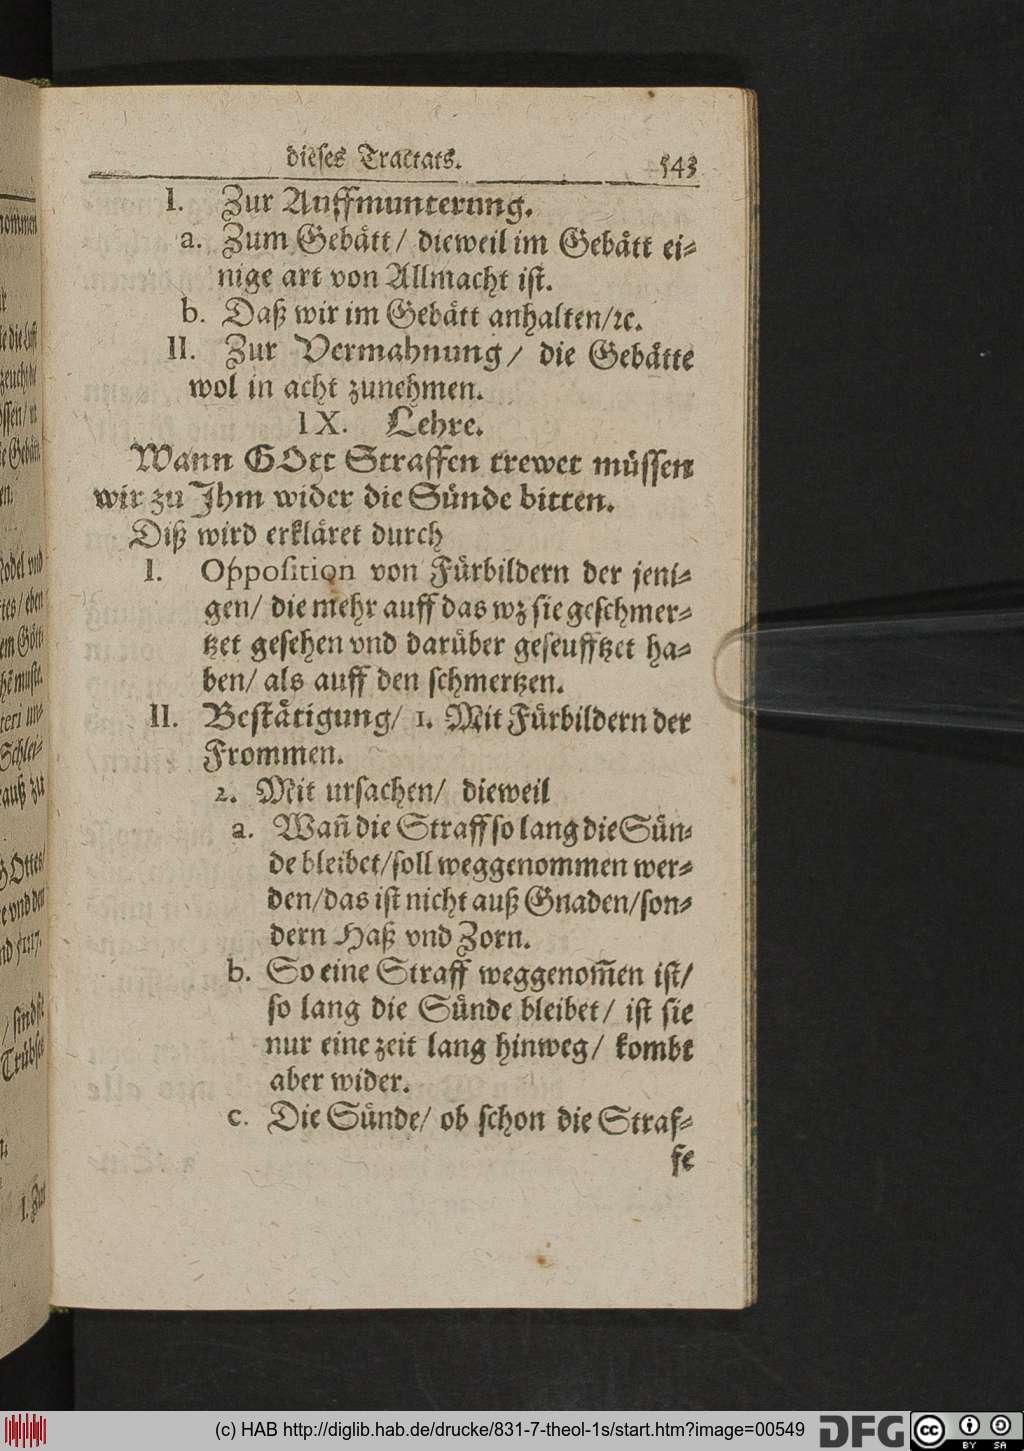 dieses Tractats. 543
I. Zur Auffmunterung.
a. Zum Gebått/ dieweil im Gebått ei-
nige art von Allmacht ist.
b. Daß wir im Gebått anhalten/ꝛc.
II. Zur Vermahnung/ die Gebåtte
wol in acht zunehmen.
IX. Lehre.
Wann GOtt Straffen trewet müssen
wir zu Ihm wider die Sünde bitten.
Diß wird erkläret durch
I. Opposition von Fürbildern der jeni-
gen/ die mehr auff das wz sie geschmer-
tzet gesehen vnd darüber geseufftzet ha-
ben/ als auff den schmertzen.
II. Beståtigung/ 1. Mit Fürbildern der
Frommen.
2. Mit ursachen/ dieweil
a. Wañ die Straff so lang die Sün-
de bleibet/soll weggenommen wer-
den/das ist nicht auß Gnaden/son-
dern Haß vnd Zorn.
b. So eine Straff weggenom̃en ist/
so lang die Sünde bleibet/ ist sie
nur eine zeit lang hinweg/ kombt
aber wider.
c. Die Sünde/ ob schon die Straf-
fe
(c) HAB http://diglib.hab.de/drucke/831-7-theol-1s/start.htm?image=00549
DFG
cc BY SA